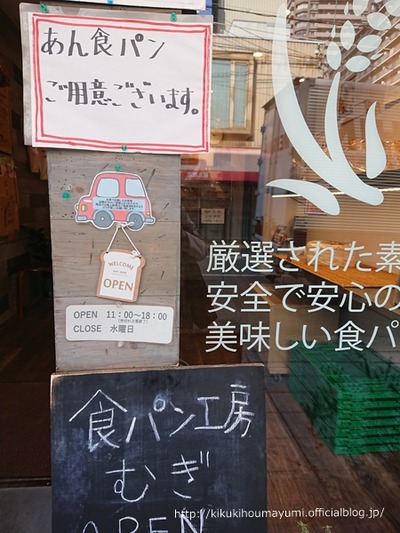 あん食パン
ご用意ございます。
WELCOME
OPEN
OPEN 11:00～18:00
(売切れ次第終了)
CLOSE 水曜日
厳選された素
安全で安心の
美味しい食パ
食パン工房
むぎ
OPEN
http://kikukihoumayumi.officialblog.jp/